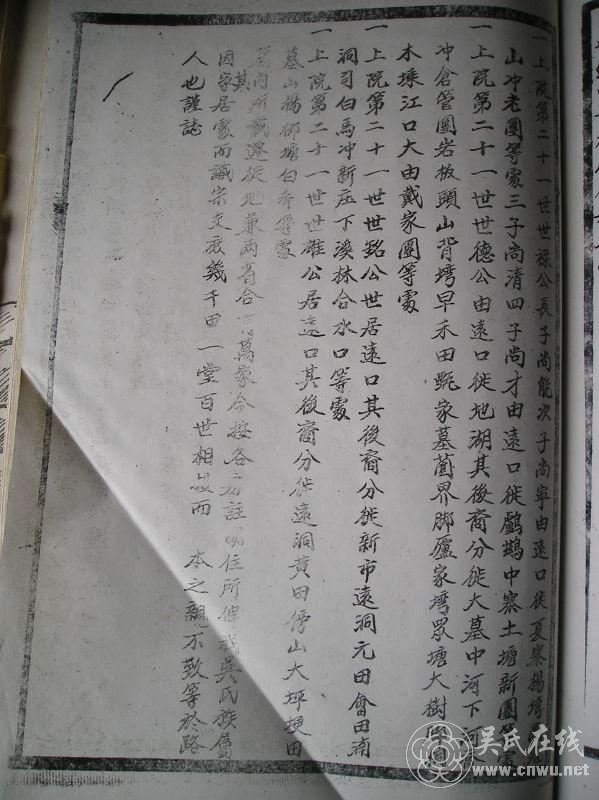 一上院第二十一世世祿公長子尚能次子尚寧由遠口徙夏寨楊塆
山冲老團等處三子尚清四子尚才由遠口徙鸕鷀中寨土塘新團等處
一上院第二十一世世德公由遠口徙地湖其後裔分徙大墓中河下
冲倉管團岩板頭山背塆早禾田甄家墓菌界脚廬家塆眾塘大樹
木埰江口大由戴家團等處
一上院第二十一世世銘公世居遠口其後裔分徙新市遠洞元田會田滴
洞司白馬冲新庄下溪林合水口等處
一上院第二十一世世雄公居遠口其後裔分徙遠洞黄田傍山大坪梗田
墓山楊柳塘白香等處
內所載遷徙地兼兩省合萬家今按各房註明住所俾我吳氏族屬
其
因家居處而識宗支庶幾千田一堂百世相 而 本之親不致等於路
人也謹誌
吴氏在线
www.cnwu.net